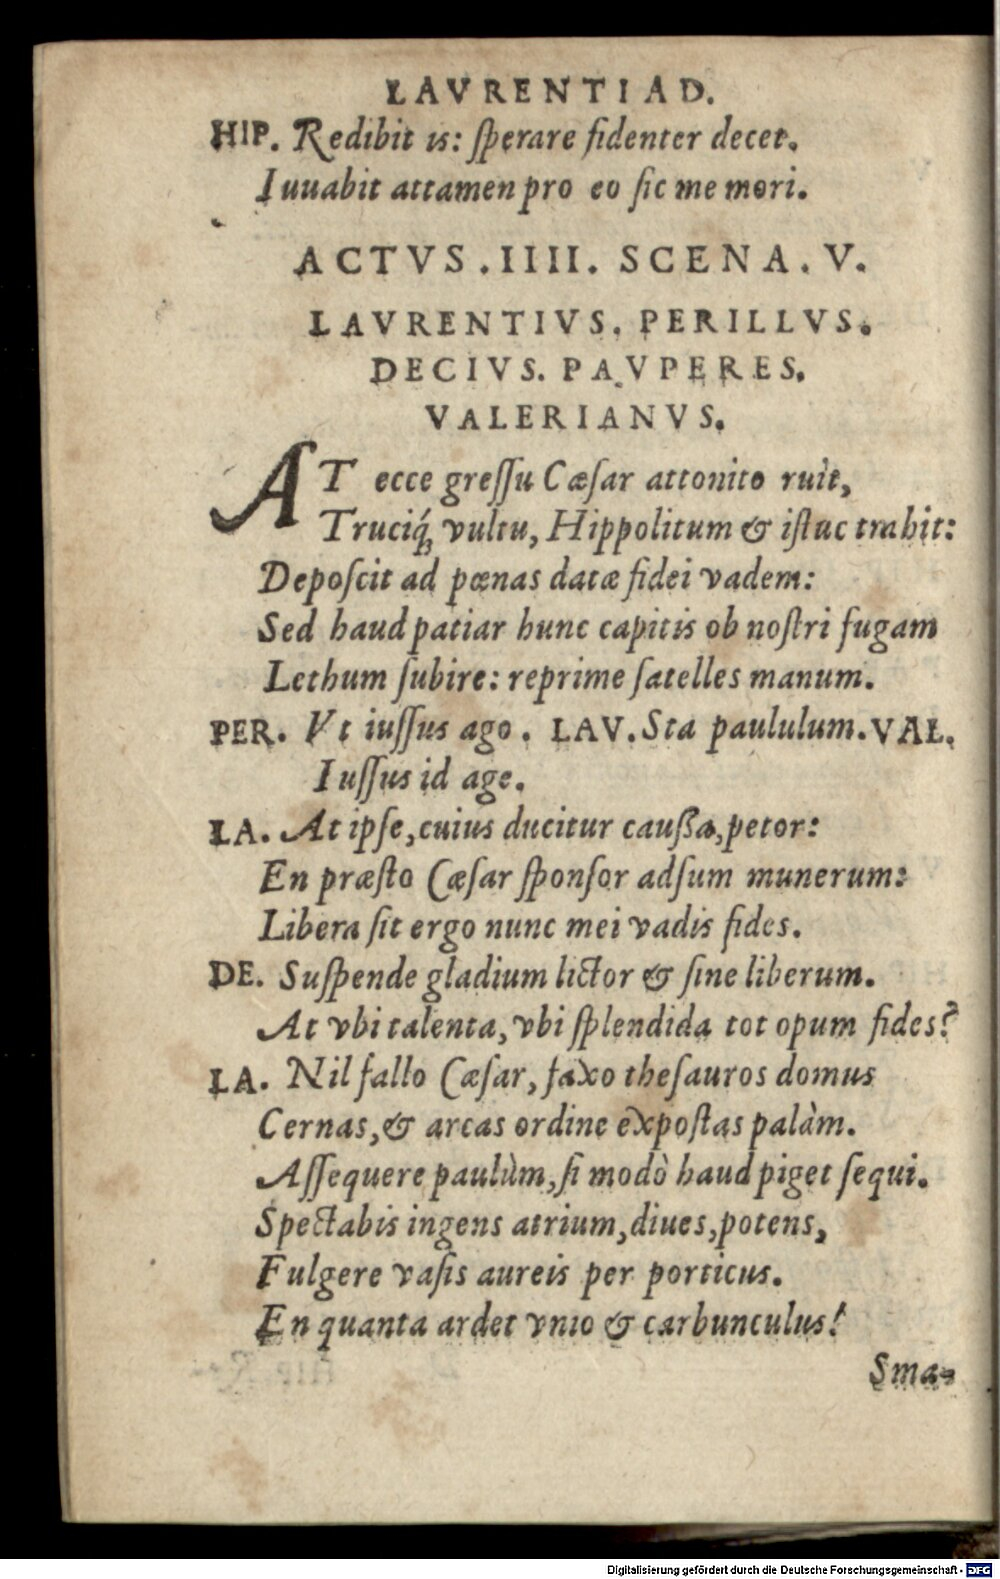 LAVRENTIAD.
HIP. Redibit is: ſperare fidenter decet.
Iuuabit attamen pro eo ſic me mori.
ACTVS.IIII. SCENA. V.
LAVRENTIVS. PERILLVS.
DECIVS. PAVPERES.
VALERIANVS.
AT ecce greſſu Cæſar attonito ruìt,
Truciq́; vultu, Hippolitum & iſtuc trahit:
Depoſcit ad pœnas datæ fidei vadem:
Sed haud patiar hunc capitis ob noſtri fugam
Lethum ſubire: reprime ſatelles manum.
PER. Vt iuſſus ago. LAV. Sta paululum. VAL.
Iuſſus id age.
LA. At ipſe, cuius ducitur cauſſa, petor:
En præſto Cæſar ſponſor adſum munerum:
Libera ſit ergo nunc mei vadis fides.
DE. Suſpende gladium lictor & ſine liberum.
At vbi talenta, vbi ſplendida tot opum fides?
LA. Nil fallo Cæſar, faxo theſauros domus
Cernas, & arcas ordine expoſtas palàm.
Aſſequere paulùm, ſi modò haud piget ſequi.
Spectabis ingens atrium, diues, potens,
Fulgere vaſis aureis per porticus.
En quanta ardet vnio & carbunculus!
Sma-
Digitalisierung gefördert durch die Deutsche Forschungsgemeinschaft - DFG